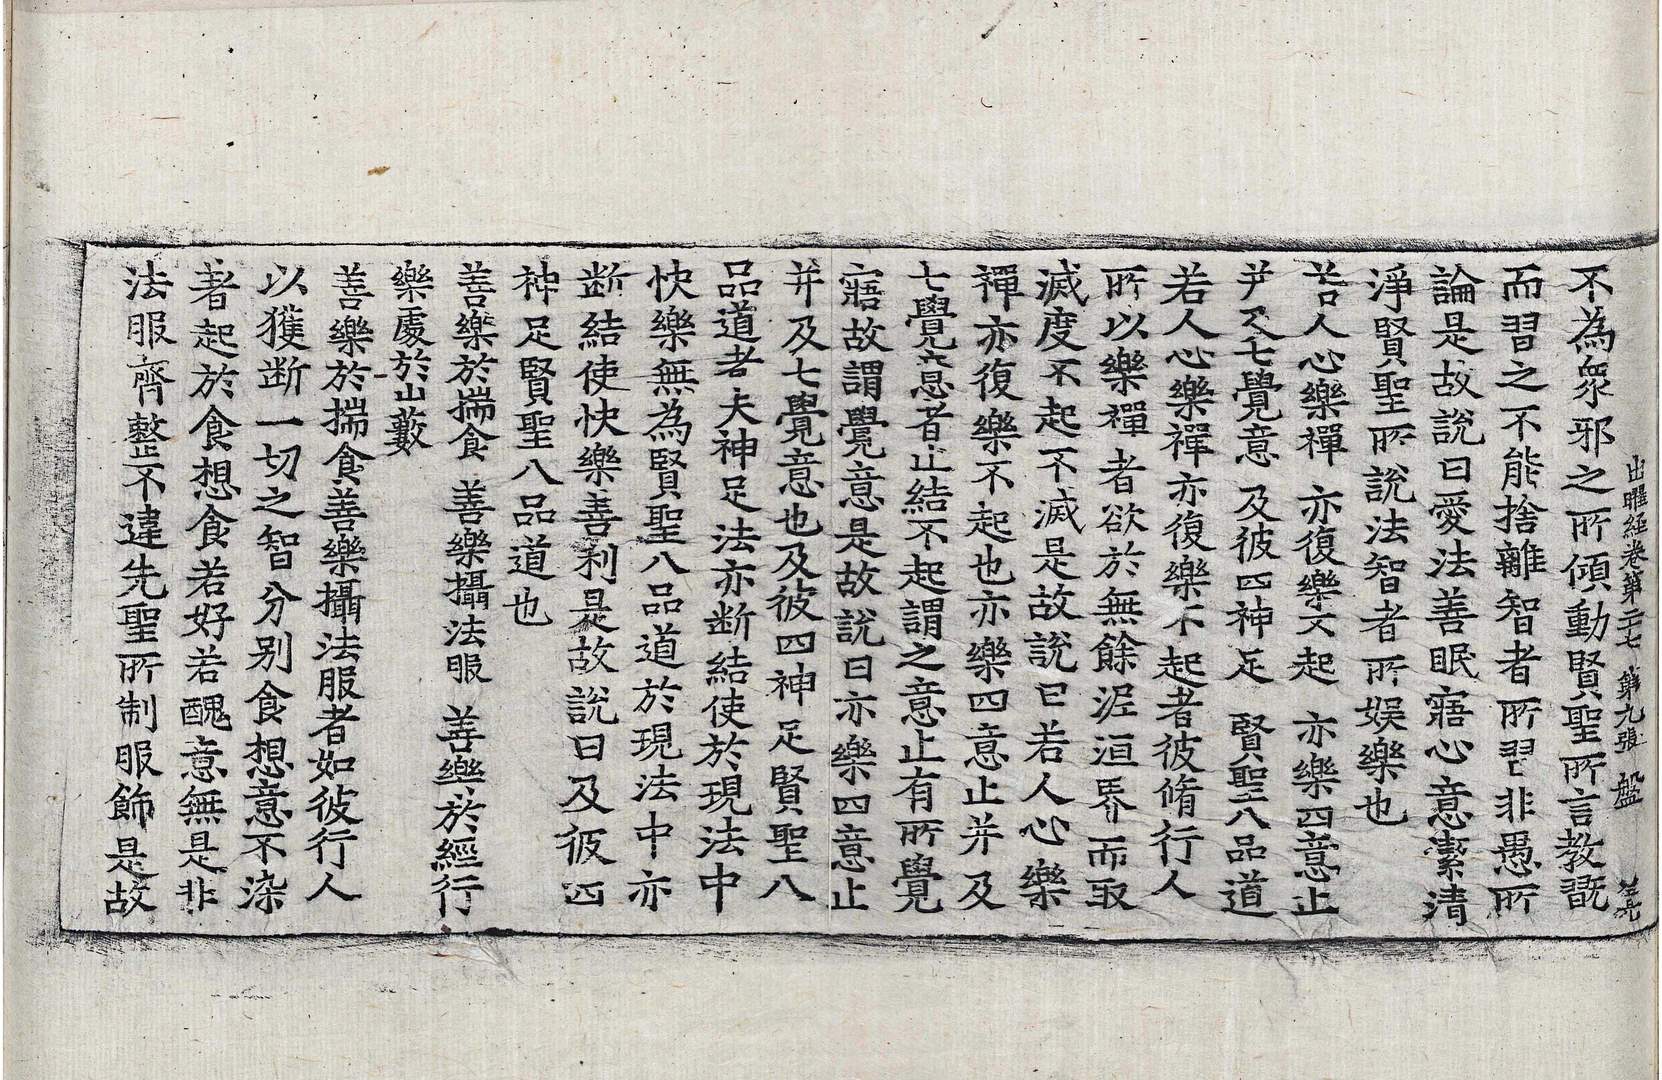 出曜經卷第二十七 第九張 盤
不為衆邪之所傾動賢聖所言教誡
而習之不能捨離智者所習非愚所
論是故說曰愛法善眠寤心意潔清
淨賢聖所說法智者所娛樂也
若人心樂禪 亦復樂不起 亦樂四意止
并及七覺意 及彼四神足 賢聖八品道
若人心樂禪亦復樂不起者彼脩行人
所以樂禪者欲於無餘泥洹界而取
滅度不起不滅是故說曰若人心樂
禪亦復樂不起也亦樂四意止并及
七覺意者止結不起謂之意止有所覺
寤故謂覺意是故說曰亦樂四意止
并及七覺意也及彼四神足賢聖八
品道者夫神足法亦断結使於現法中
快樂無為賢聖八品道於現法中亦
断結使快樂善利是故說曰及彼四
神足賢聖八品道也
善樂於揣食 善樂攝法服 善樂於經行
樂處於山藪
善樂於揣食善樂攝法服者如彼行人
以獲断一切之智分别食想意不染
著起於食想食若好若醜意無是非
法服齊整不違先聖所制服飾是故